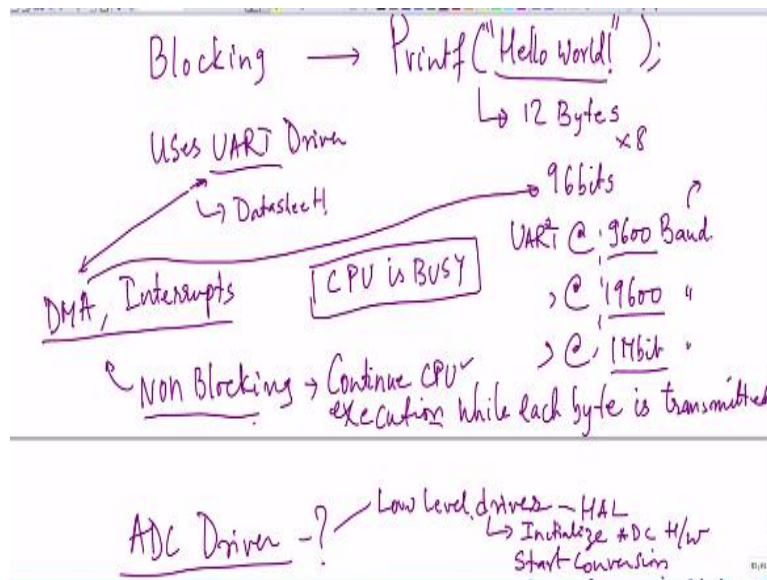 Blocking → Printf("Hello World!");
↳ 12 Bytes
×8
Uses UART Driver
96bits
↳ Datasheet!
UART @ 9600 Baud.
CPU is BUSY
DMA, Interrupts
, @ 19600 "
, @ 1Mbit "
Non Blocking → Continue CPU
execution while each byte is transmitted
ADC Driver - ?
Low Level drives - HAL
↳ Initialize ADC H/W
Start Conversion